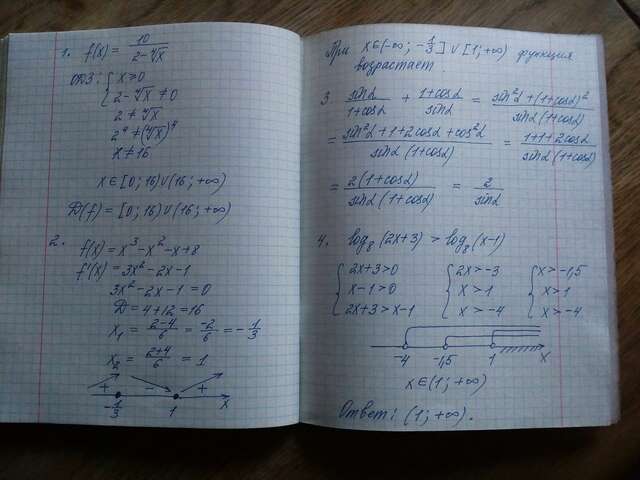 1. f(x) = 10 / (2-⁴√x)
ОДЗ: { x ≥ 0
2-⁴√x ≠ 0
2 ≠ ⁴√x
2⁴ ≠ (⁴√x)⁴
x ≠ 16
x∈[0; 16)∪(16; +∞)
D(f) = [0; 16)∪(16; +∞)
2. f(x) = x³-x²-x+8
f'(x) = 3x²-2x-1
3x²-2x-1=0
D = 4+12 = 16
x₁ = (2-4)/6 = -2/6 = -1/3
x₂ = (2+4)/6 = 1
+ - +
-1/3 1 x
При x∈(-∞; -1/3]∪[1; +∞) функция
возрастает
3. sinα/(1+cosα) + (1+cosα)/sinα = (sin²α+(1+cosα)²)/(sinα(1+cosα))
= (sin²α+1+2cosα+cos²α)/(sinα(1+cosα)) = (1+1+2cosα)/(sinα(1+cosα))
= 2(1+cosα)/(sinα(1+cosα)) = 2/sinα
4. log₈(2x+3) > log₈(x-1)
{ 2x+3>0 { 2x>-3 { x>-1,5
x-1>0 x>1 x>1
2x+3>x-1 x>-4 x>-4
-4 -1,5 1 x
x∈(1; +∞)
Ответ: (1; +∞).